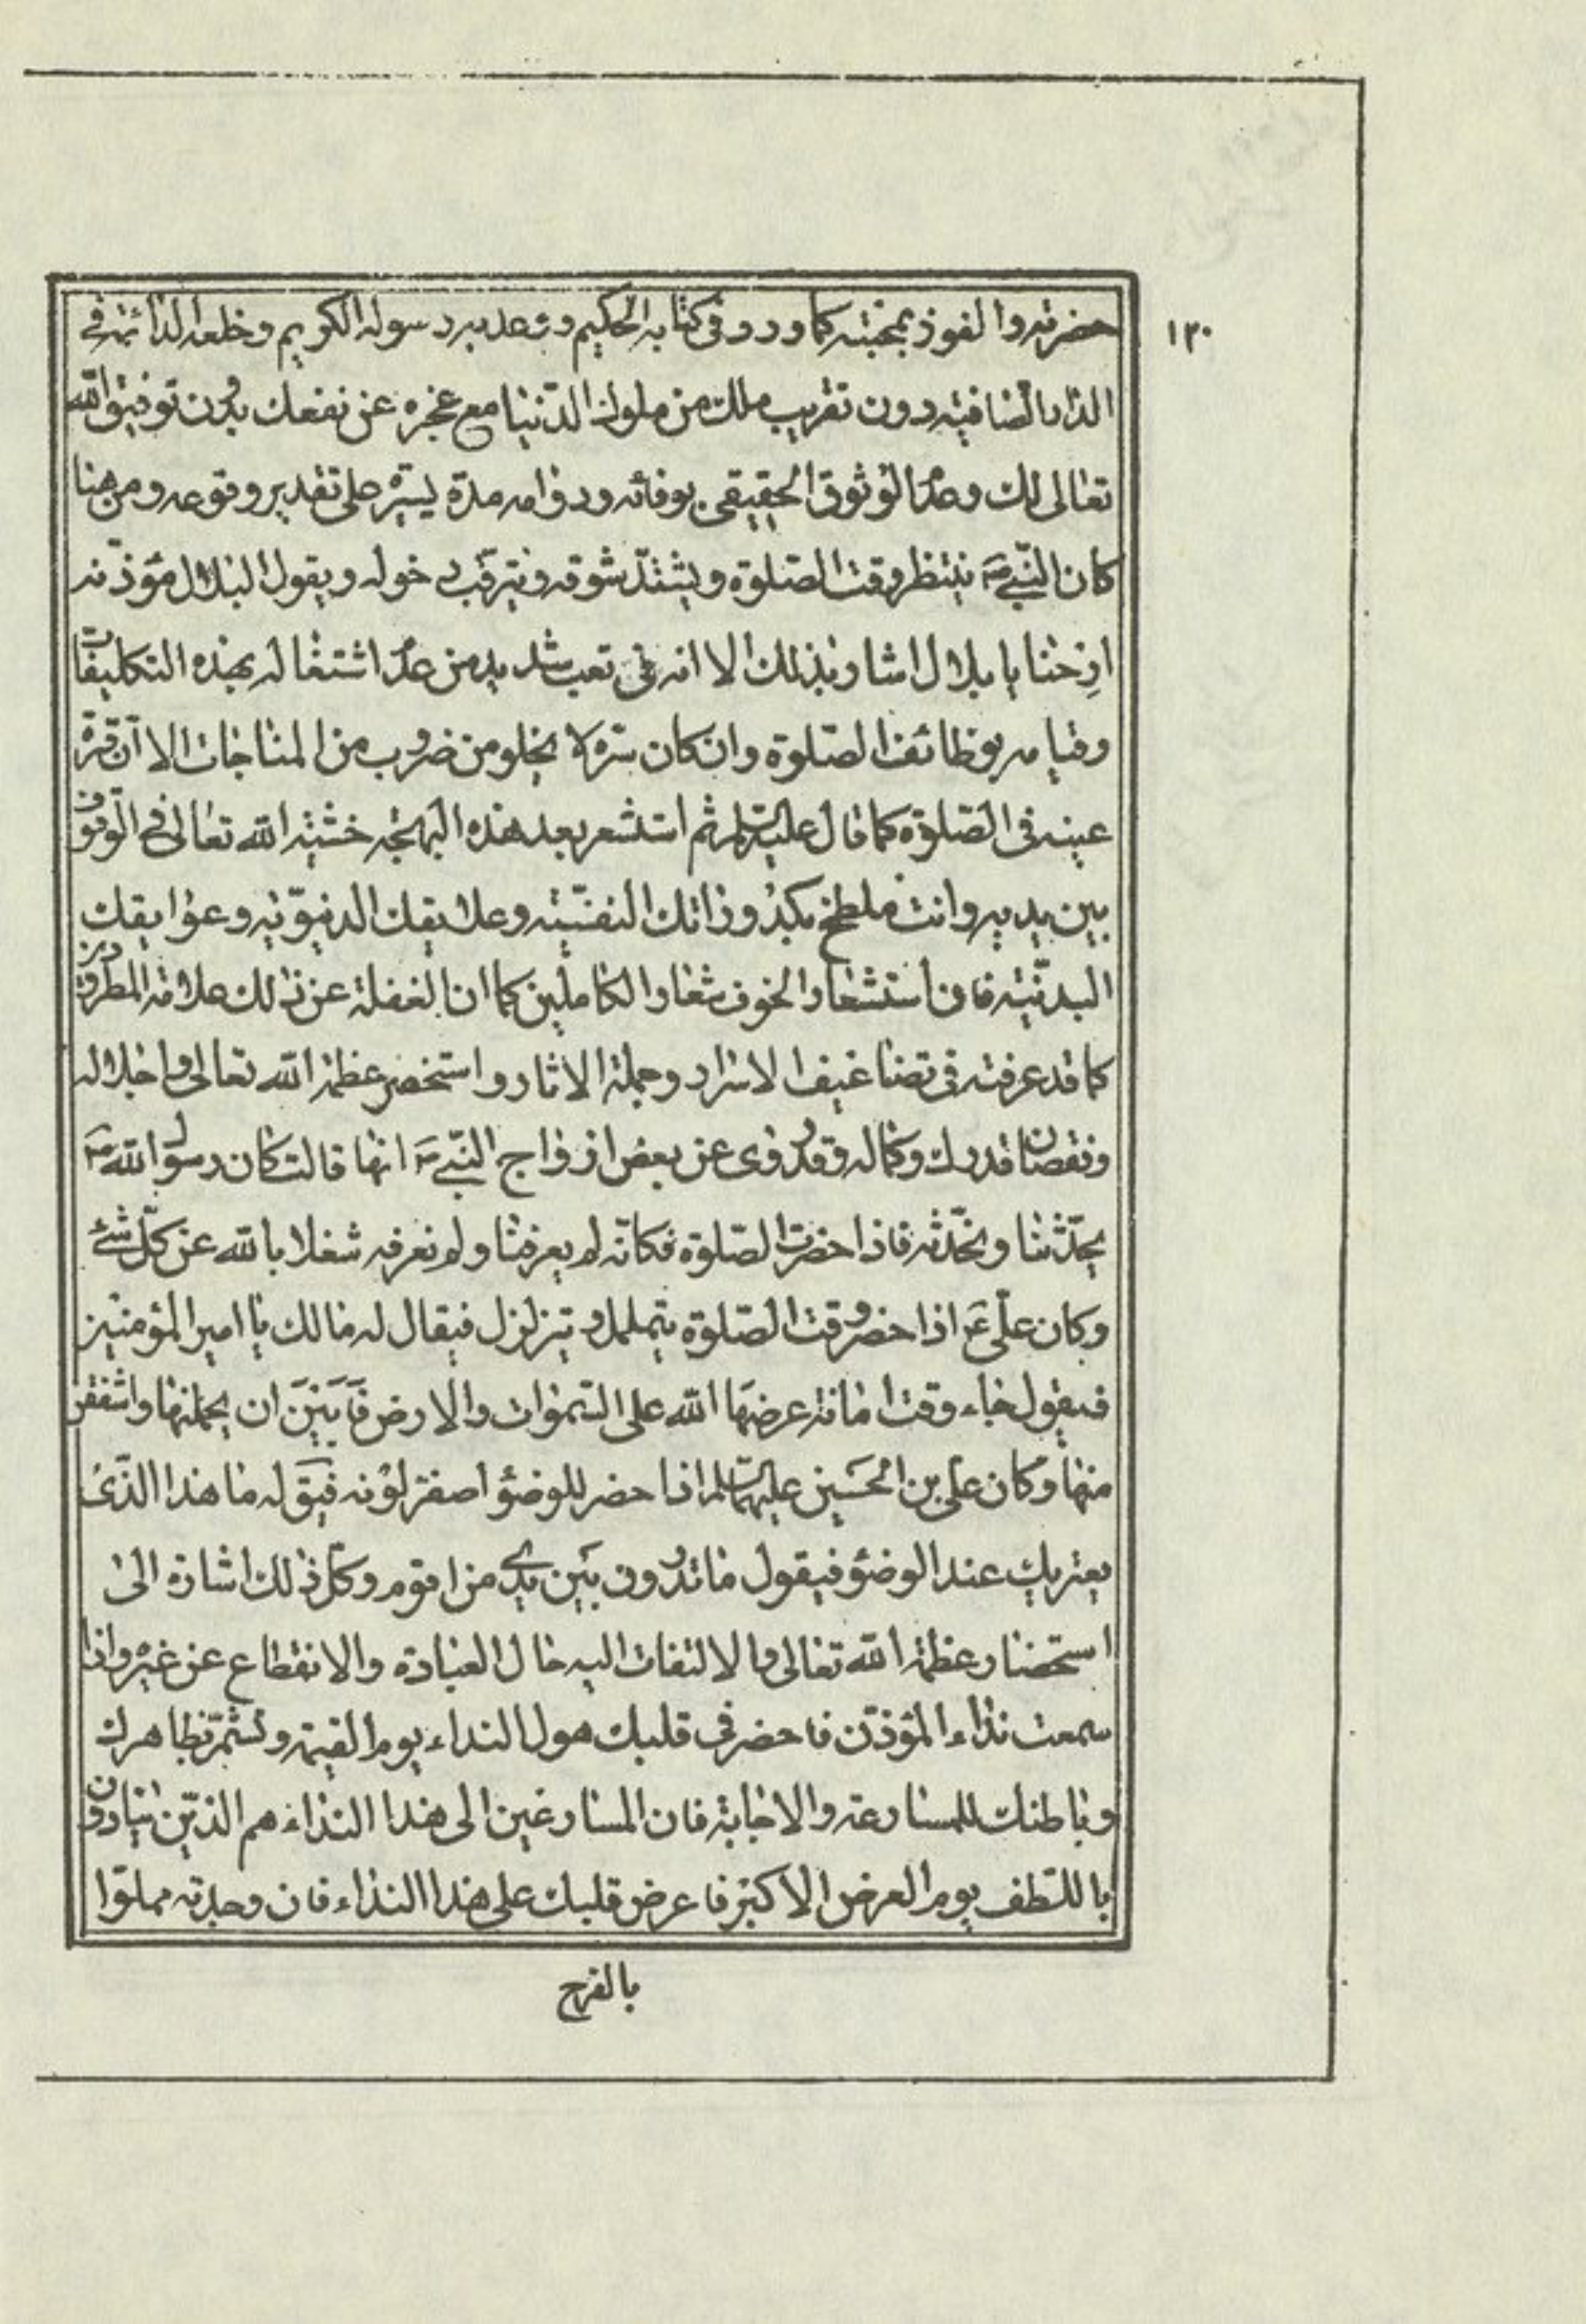 ١٣٠
حضرته والفوز بمحبته كما ورد فى كتابه الحكيم ووعد به رسوله الكريم وخلعه الدائمة فى
الدار الصافية دون تقريب ملك من ملوك الدنيا مع عجزه عن نفعك بدون توفيق الله
تعالى لك وعدم الوثوق الحقيقى بوفائه ودوامه مدة يسيرة على تقدير وقوعه ومن هنا
كان النبي ص ينتظر وقت الصلوة ويشتد شوقه ويترقب دخوله ويقول لبلال مؤذنه
ارحنا يا بلال اشار بذلك الا انه فى تعب شديد من عدم اشتغاله بهذه التكليفات
وقيامه بوظائف الصلوة وان كان سره لا يخلو من ضروب من المناجات الا ان قرة
عينه فى الصلوة كما قال عليه السلم ثم استشعر بعد هذه البهجة خشية الله تعالى فى الوقوف
بين يديه وانت ملطخ بكدوراتك النفسية وعلايقك الدنيوية وعوايقك
البدنية فان استشعار الخوف شعار الكاملين كما ان الغفلة عن ذلك علامة المطرودين
كما قد عرفته فى تضاعيف الاسرار وجملة الاثار واستحضر عظمة الله تعالى واجلاله
ونقصان قدرك وكماله وقد روى عن بعض ازواج النبي ص انها قالت كان رسول الله ص
يحدثنا ونحدثه فاذا حضرت الصلوة فكانه لم يعرفنا ولم نعرفه شغلا بالله عن كل شئ
وكان على ع اذا حضر وقت الصلوة يتململ ويتزلزل فيقال له ما لك يا امير المؤمنين
فيقول جاء وقت امانة عرضها الله على السموات والارض فابين ان يحملنها واشفقن
منها وكان على بن الحسين عليهما السلم اذا حضر للوضؤ اصفر لونه فيق له ما هذا الذى
يعتريك عند الوضؤ فيقول ما تدرون بين يدى من اقوم وكل ذلك اشارة الى
استحضار عظمة الله تعالى والالتفات اليه حال العبادة والانقطاع عن غيره واذا
سمعت نداء المؤذن فاحضر فى قلبك هول النداء يوم القيمة وتشمر بظاهرك
وباطنك للمسارعة والاجابة فان المسارعين الى هذا النداء هم الذين ينادون
باللطف يوم العرض الاكبر فاعرض قلبك على هذا النداء فان وجدته مملوا
بالفرح